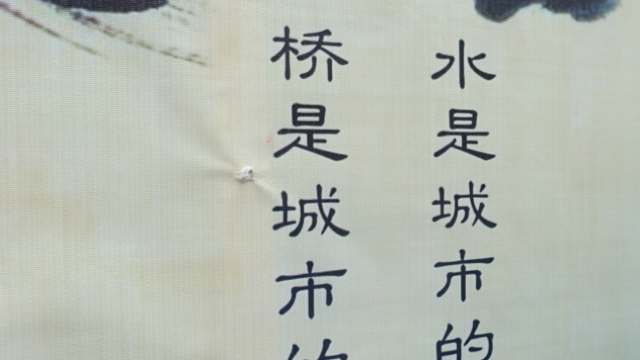 水是城市的
桥是城市的